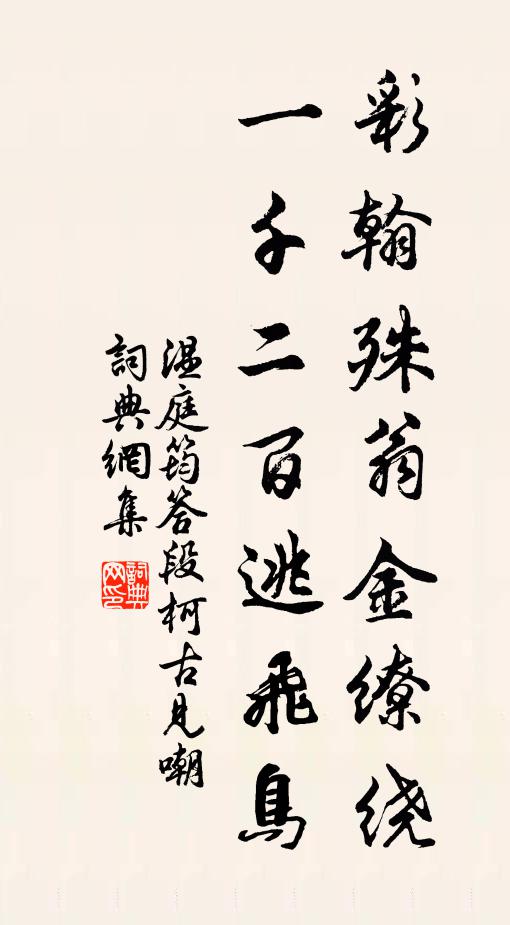 彩翰殊翁金缭绕
一千二百逃飞鸟
温庭筠答段柯古见嘲
詞典網集
詞典网印